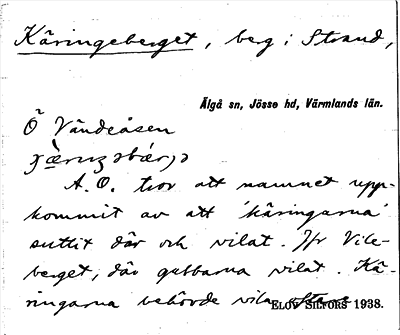 Käringeberget, berg i Strand,
Älgå sn, Jösse hd, Värmlands län.
Ö Vändeåsen
A. O. tror att namnet upp-
kommit av att 'käringarna'
suttit där och vilat. Jfr Vile-
berget, där gubbarna vilat. Kä-
ringarna behövde vila oftare
ELOV SILFORS 1938.